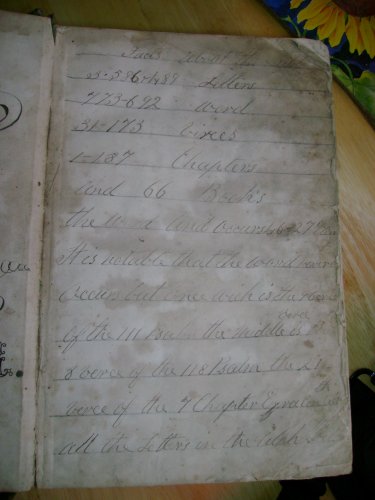 Facts about the
3-586-489 Letters
773-692 Word
31-173 Virces
1-187 Chapters
and 66 Book's
the word and occurs 46-27
It is notable that the word
Occurs but once wich is the
of the 111 Psalm the middle is
8 verce of the 118 Psalm the 21
verce of the 7 Chapter Ezra
all the letters in the